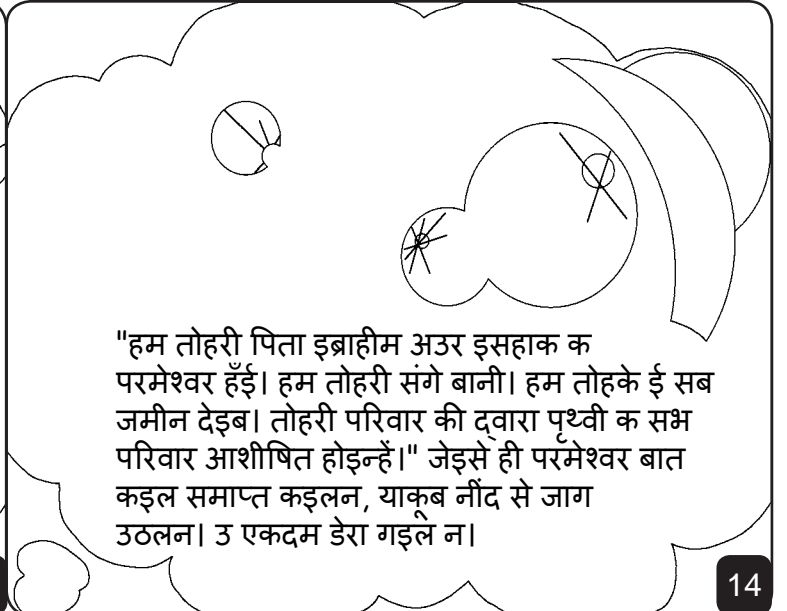 "हम तोहरी पिता इब्राहीम अउर इसहाक क
परमेश्वर हँई। हम तोहरी संगे बानी। हम तोहके ई सब
जमीन देइब। तोहरी परिवार की द्वारा पृथ्वी क सभ
परिवार आशीषित होइन्हें।" जेइसे ही परमेश्वर बात
कइल समाप्त कइलन, याकूब नींद से जाग
उठलन। उ एकदम डेरा गइल न।
14